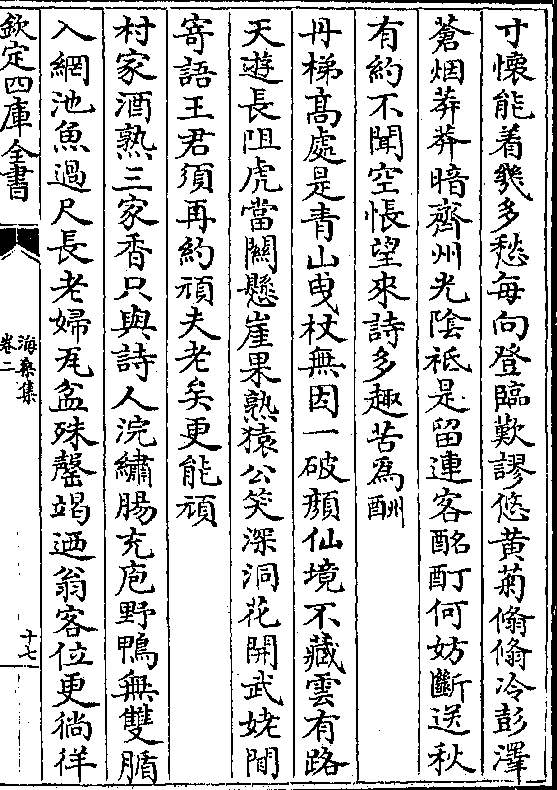 寸懷能着幾多愁每向登臨歎謬悠黃菊翛翛冷彭澤
蒼烟莽莽暗齊州光陰祗是留連客酩酊何妨斷送秋
有約不聞空悵望來詩多趣苦爲酬
丹梯髙處是青山曳杖無因一破顔仙境不藏雲有路
天遊長阻虎當關懸崖果熟猿公笑深洞花開武姥閒
寄語王君須再約頑夫老矣更能頑
村家酒熟三家香只與詩人浣繡腸充庖野鴨無雙腯
入網池魚過尺長老婦瓦盆殊罄竭迺翁客位更徜徉
欽定四庫全書
海桑集
卷二
十七